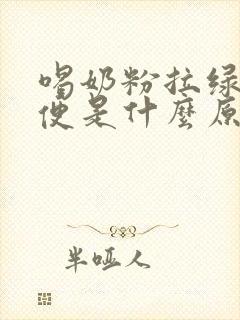 喝奶粉拉绿
便是什麼原
半哑人